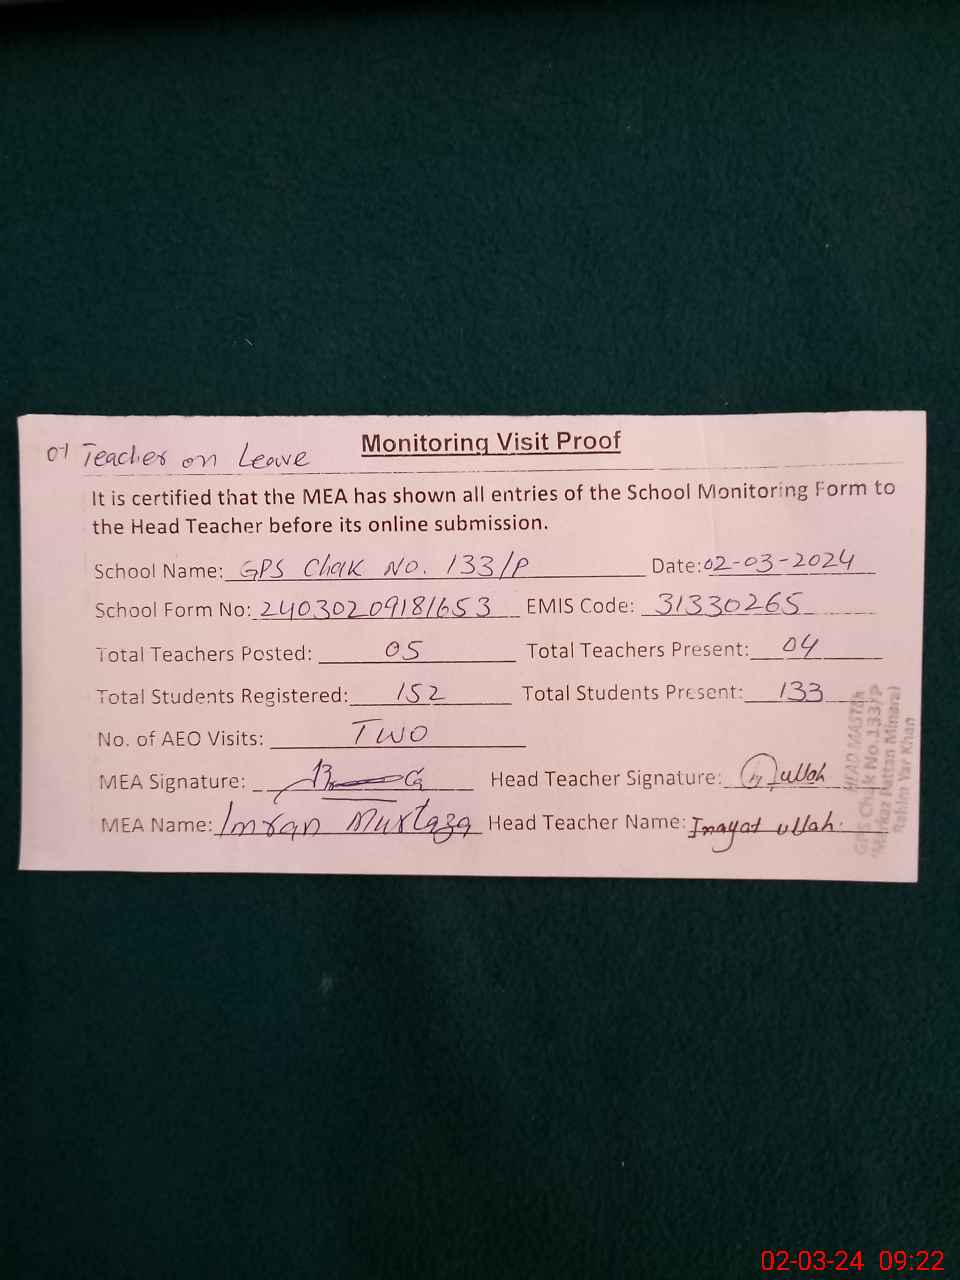 01 Teacher on Leave
Monitoring Visit Proof
It is certified that the MEA has shown all entries of the School Monitoring Form to
the Head Teacher before its online submission.
School Name: GPS Chak No. 133/P Date: 02-03-2024
School Form No: 24030209181653 EMIS Code: 31330265
Total Teachers Posted: 05 Total Teachers Present: 04
Total Students Registered: 152 Total Students Present: 133
No. of AEO Visits: Two
MEA Signature: Head Teacher Signature: ullah
MEA Name: Imran Murtaza Head Teacher Name: Inayat ullah.
HEAD MASTER
GPS Chak No.133/P
Markaz Rattan Minaral
Rahim Yar Khan
02-03-24 09:22